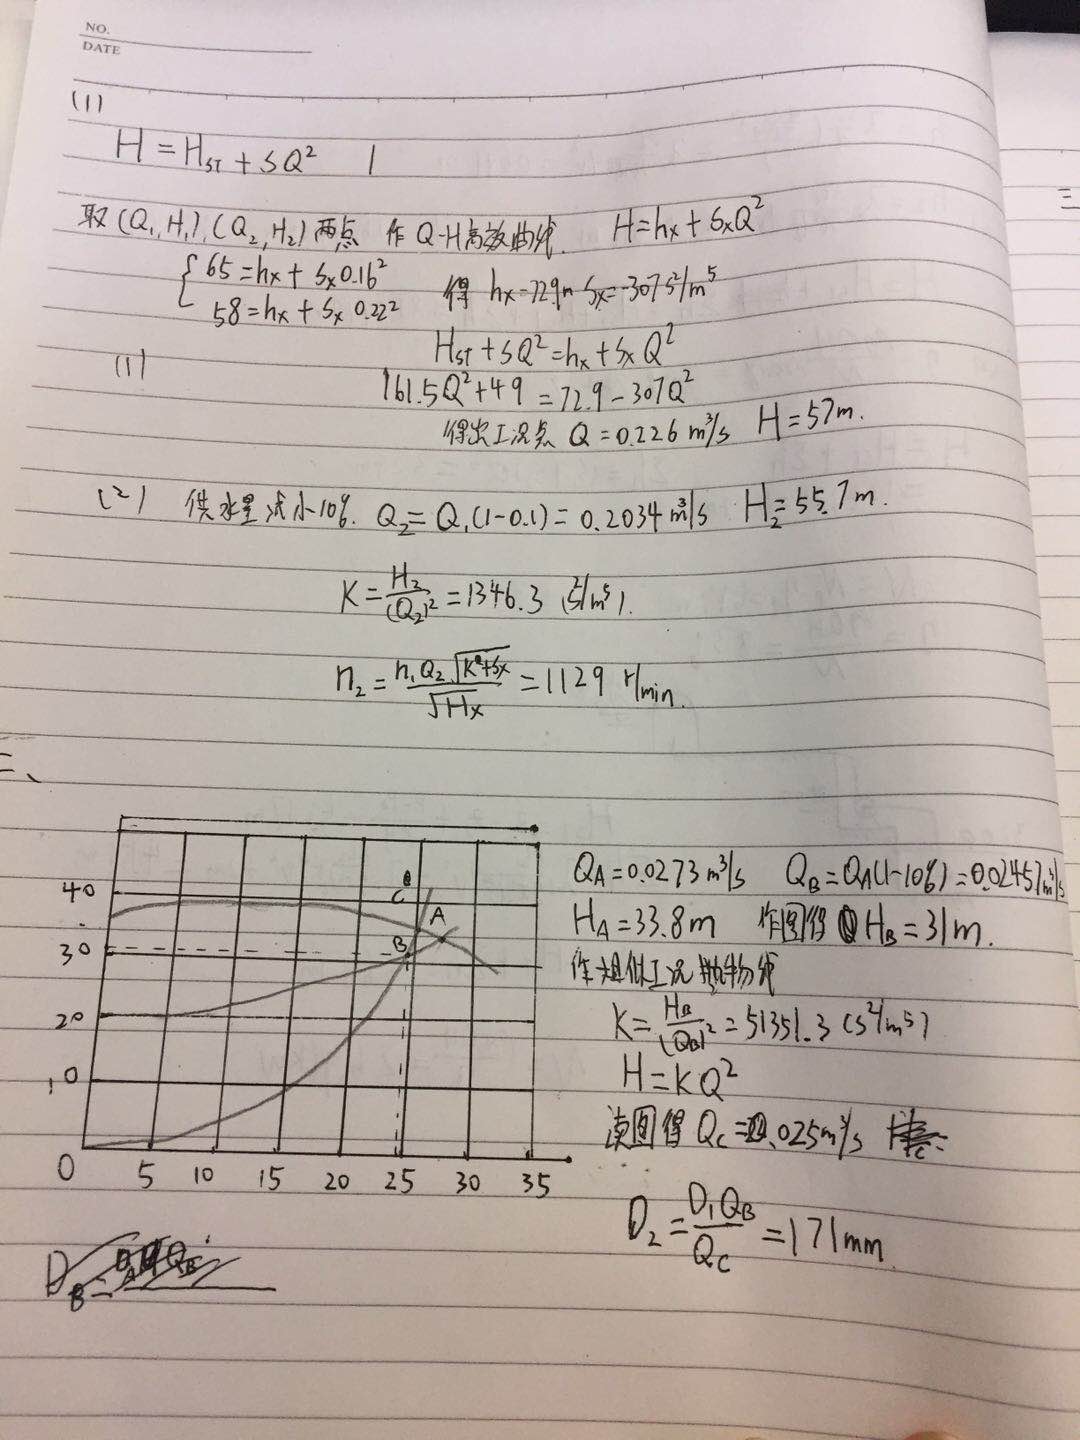 NO.
DATE
(1)
H = H_ST + SQ² 1
取(Q₁,H₁),(Q₂,H₂)两点 作Q-H高效曲线. H=hx+SxQ²
{ 65=hx+Sx0.16² 得 hx=72.9m Sx=-307s²/m⁵
58=hx+Sx 0.22²
H_ST+SQ²=hx+SxQ²
(1) 161.5Q²+49=72.9-307Q²
得出工况点 Q=0.226 m³/s H=57m.
(2) 供水量减小10%. Q₂=Q₁(1-0.1)=0.2034 m³/s H₂=55.7m.
K=H₂/(Q₂)²=1346.3 (s²/m⁵).
n₂=n₁Q₂√(K+Sx)/√Hx=1129 r/min.
二、
40
30
20
10
0 5 10 15 20 25 30 35
C
A
B
Q_A=0.0273m³/s Q_B=Q_A(1-10%)=0.02457m³/s
H_A=33.8m 作图得 H_B=31m.
作相似工况抛物线
K=H_B/(Q_B)²=51351.3 (s²/m⁵)
H=KQ²
读图得 Q_C=0.025m³/s
D₂=D₁Q_B/Q_C=171mm